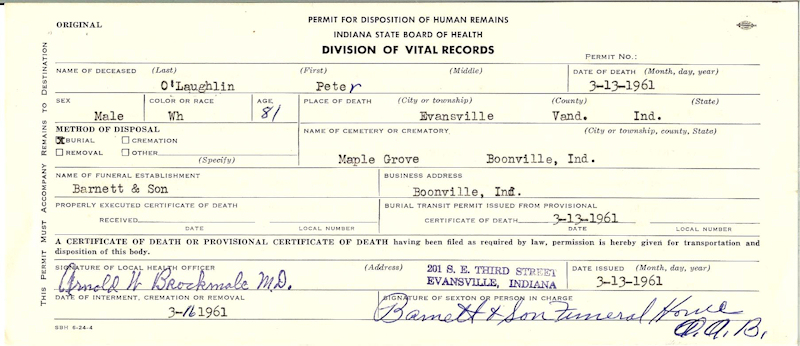 ORIGINAL
PERMIT FOR DISPOSITION OF HUMAN REMAINS
INDIANA STATE BOARD OF HEALTH
DIVISION OF VITAL RECORDS
PERMIT NO.:
THIS PERMIT MUST ACCOMPANY REMAINS TO DESTINATION
NAME OF DECEASED (Last) (First) (Middle) DATE OF DEATH (Month, day, year)
O'Laughlin Peter 3-13-1961
SEX COLOR OR RACE AGE PLACE OF DEATH (City or township) (County) (State)
Male Wh 81 Evansville Vand. Ind.
METHOD OF DISPOSAL NAME OF CEMETERY OR CREMATORY (City or township, county, State)
BURIAL CREMATION
REMOVAL OTHER
(Specify) Maple Grove Boonville, Ind.
NAME OF FUNERAL ESTABLISHMENT BUSINESS ADDRESS
Barnett & Son Boonville, Ind.
PROPERLY EXECUTED CERTIFICATE OF DEATH BURIAL TRANSIT PERMIT ISSUED FROM PROVISIONAL
RECEIVED CERTIFICATE OF DEATH 3-13-1961
DATE LOCAL NUMBER DATE LOCAL NUMBER
A CERTIFICATE OF DEATH OR PROVISIONAL CERTIFICATE OF DEATH having been filed as required by law, permission is hereby given for transportation and
disposition of this body.
SIGNATURE OF LOCAL HEALTH OFFICER (Address) 201 S. E. THIRD STREET DATE ISSUED (Month, day, year)
Arnold W Brockmole M.D. EVANSVILLE, INDIANA 3-13-1961
DATE OF INTERMENT, CREMATION OR REMOVAL SIGNATURE OF SEXTON OR PERSON IN CHARGE
3-16 1961 Barnett & Son Funeral Home
A.A.B.
SBH 6-24-4